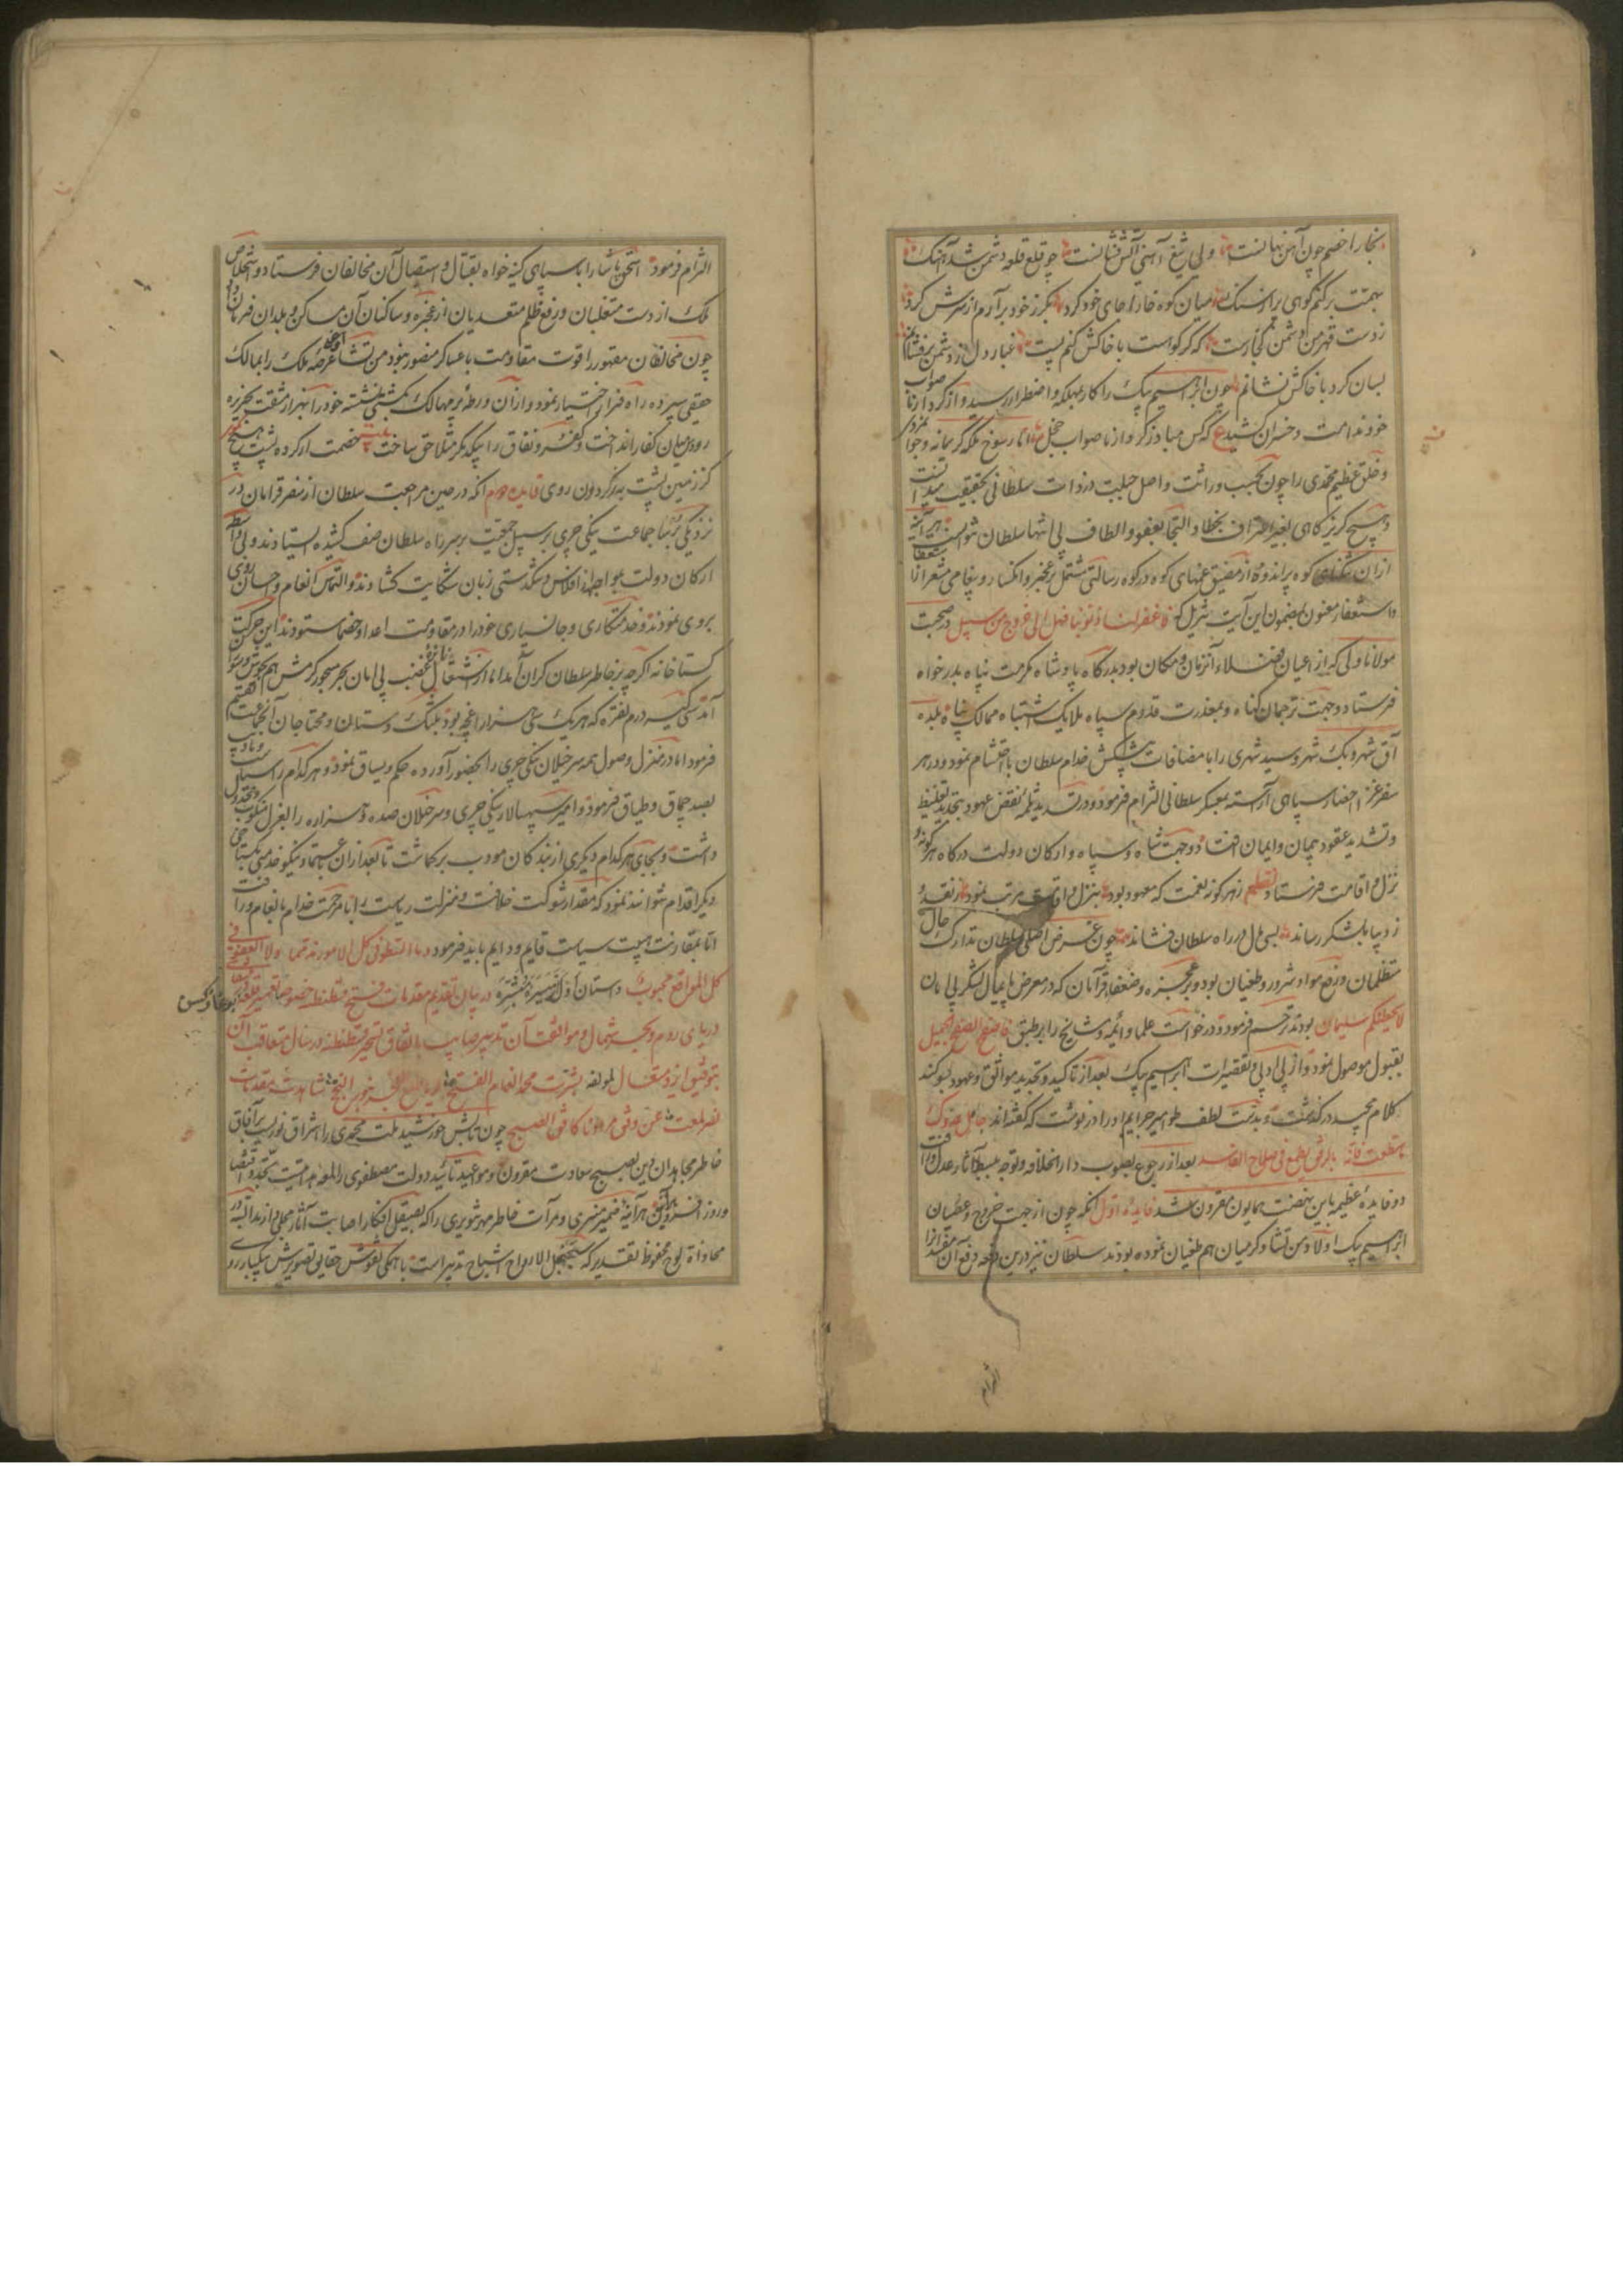 بخارا خصم چون آهن نهانست ولی تیغ آهنی آتش فشانست چو قلع قلعه دشمن شد آهنک
بهمت برکنم کوهی برا و سنک میان کوه خارا جای خود کرد بکرز خود برآرم از سرش کرد
ز دست قهر من دشمن کجا رست که کر کو است با خاکش کنم پست غبار دل ز دشمن برفشانم
بسان کرد با خاکش نشانم چون ابراهیم بیک را کار بمهلکه و اضطرار رسید و از کردار ناصواب
خود ندامت و خسران کشید ع که کس مبادز کردار ناصواب خجل اما رسوخ
و خلق عظیم محمدی را چون بحسب وراثت و اصل جبلیت در ذات سلطانی بتحقیق میدانست
و هیچ کریزکاهی بغیر اعتراف بخطا و التجا بعفو و الطاف بی انتها سلطان نتوانست هر آینه
ازان تنکنای کوه پر اندوه از مضیق غمهای کوه در کوه رسالتی مشتمل بر عجز و انکسار و پیغامی مشعر از استعفا
و استغفار معنون بمضمون این آیت تنزیل که فاغفر لنا ذنوبنا فهل الی خروج من سبیل در صحبت
مولانا ولی که از اعیان فضلاء آن زمان و مکان بود بدرکاه پادشاه مکرمت پناه بدرخواه
فرستاد و جهت ترجمان کناه و بمعذرت قدوم سپاه ملایک اشتباه ممالک پناه بلده
آق شهر و بک شهر و سیدشهری را با مضافات پیشکش خدام سلطان با احتشام نمود و در هر
سفر عزا احضار سپاهی آراسته بمعسکر سلطانی التزام فرمود و در تشدید ثلمه نقض عهود بتجدید تغلیظ
و تشدید عقود پیمان و ایمان افتاد و جهت شاه و سپاه و ارکان دولت درکاه هرکونه
نزل و اقامت فرستاد نظم ز هر کونه نعمت که معهود بود بنزل و اقامت مرتب نمود ز نقد و
ز دیبا بلشکر رساند بسی مال در راه سلطان فشاند چون غرض اصلی سلطان تدارک حال
متظلمان و رفع مواد شرور و طغیان بود و بر عجزه و ضعفاء قرامان که در معرض پایمال لشکر بی امان
لا یحطمنکم سلیمان بودند ترحم فرمود و درخواست علما و ائمه و مشایخ را بر طبق فاصفح الصفح الجمیل
بقبول موصول نمود و از پی در پی تقصیرات ابراهیم بیک بعد از تاکید و تجدید مواثیق و عهود بسوکند
کلام مجید درکذشت و بدست لطف طوامیر جرایم او را درنوشت که کفته‌اند جامل عدوک
ما استطعت فانه بالرفق یطمع فی صلاح الفاسد بعد از رجوع بصوب دار الخلافه و توجه ببسط آثار عدل و رافت
دو فایده عظیمه باین نهضت همایون مقرون شد فایده اول آنکه چون از جهت خروج و عصیان
ابراهیم بیک اولاد منتشا و کرمیان هم طغیان نموده بودند سلطان نیز درین دفعه دفع آن مفسد انرا
التزام
التزام فرمود اسحق پاشا را با سپاهی کینه خواه بقتال و استیصال آن مخالفان فرستاد و استخلاص
ملک از دست متغلبان و رفع ظلم متعدیان از عجزه و ساکنان آن مساکن و بلدان فرمان داد
چون مخالفان مقهور را قوت مقاومت با عساکر منصور نبود منتشا عرصه ملک را بمالک
حقیقی سپرده راه فرار اختیار نمود و از آن ورطه پر مهالک بکشتی نشسته خود را بهزار مشقت بجزیره
رودس میان کفار انداخت و کفر و نفاق را بیکدیکر متلاحق ساخت بیت خصمت ار کرد پشت هیچ مکو
کز زمین پشت به ز کردون روی فایده دوم آنکه در حین مراجعت سلطان از سفر قرامان در
نزدیکی بروسا جماعت ینکی چری بر سبیل جمعیت بر سر راه سلطان صف کشیده ایستادند و بی واسطه
ارکان دولت بمواجهه از افلاس و تنکدستی زبان شکایت کشادند و التماس انعام و احسان روی
بروی نمودند و خدمتکاری و جانسپاری خود را در مقاومت اعدا و خصما ستودند این حرکت
کستاخانه اکرچه بر خاطر سلطان کران آمد اما از اشتعال نایره غضب بی امان بحر مسجور کرمش هم بجوش و خروش
آمد سی کیسه درم نقره که هر یک سی هزار اقچه بود بتنک دستان و محتاجان آن جماعت
فرمود اما در منزل وصول همه سرخیلان ینکی چری را بحضور آورده حکم و یساق نمود و هر کدام را سیاست
بصد چماق و طیاق فرمود و امیر سپهسالار ینکی چری و سرخیلان صده و هزاره را بعزل منکوب
داشت و بجای هر کدام دیکری از بندکان مودب برکماشت تا بعد ازان
دیکر اقدام نتوانند نمود که مقدار شوکت خلافت و منزلت ریاست را با مرحمت خدام بانعام و رافت
اما بمقارنت هیبت سیاست قایم و دایم باید فرمود و ما السطو فی کل الامور مذمما ولا العفو فی
کل المواضع محبوب داستان اول در بیان تقدیم مقدمات فتح قسطنطنیه خصوصا تعمیر قلعه بوغازکسن
دریای روم و بحر شمال و موافقت آن تدبیر صایب با اتفاق تسخیر قسطنطنیه در سال متعاقب آن
بتوفیق ایزد متعال لمولفه بشرت محمد انعام الفتح
نصر لمعت عن وفق مرادنا کافق الصبح چون تابش خورشید ملت محمدی را اشراق نور بر آفاق
خاطر مجاهدان دین بصبح سعادت مقرون و مواعید تائید دولت مصطفوی را لمعه هدایت
و روز افزون هر آینه ضمیر منیری و مرآت خاطر مهر تنویری را که بصیقل افکار اصابت آثار مجلی و از بدایت در
محاذاة لوح محفوظ تقدیر که سجنجل الارواح اشباح تدبیر است با همکی نقوش حقایق تصویرش